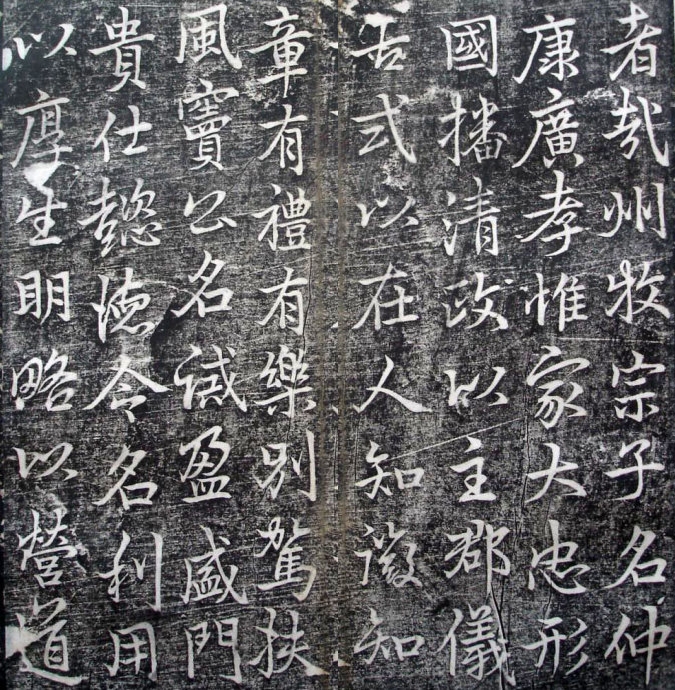 者哉州牧宗子名仲
康廣孝惟家大忠形
國播清政以主郡儀
古式以在人知徵知
章有禮有樂別駕扶
風竇公名誠盈盛門
貴仕懿德令名利用
以厚生明略以營道